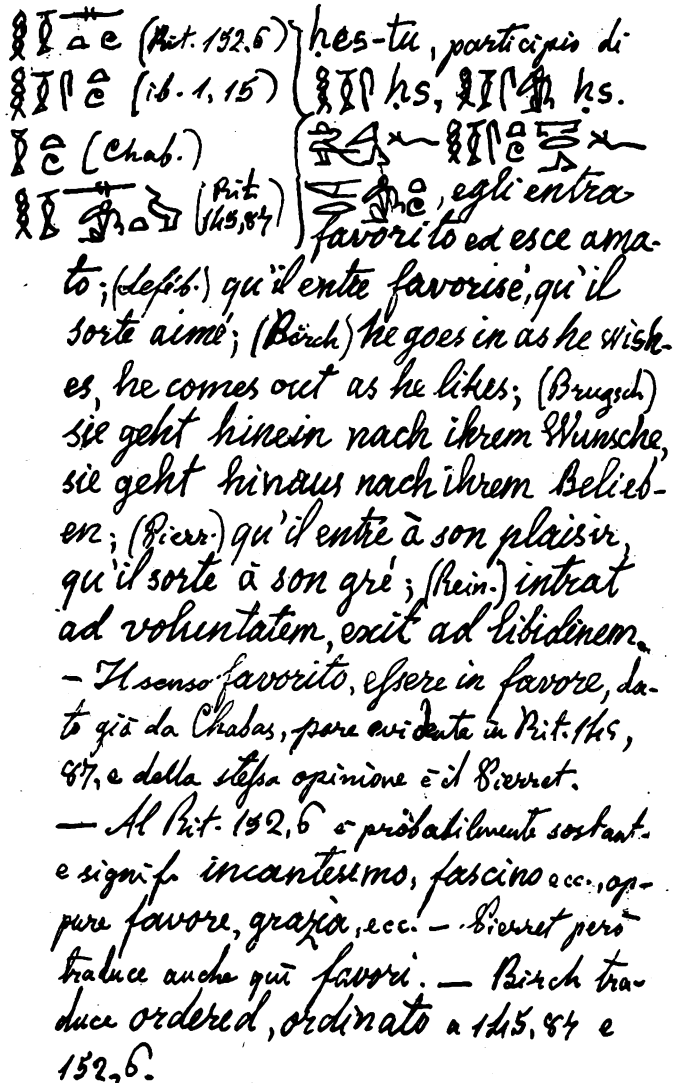 (Rit. 152.6) ḥes-tu, participio di
(ib. 1, 15) ḥs, ḥs.
(Chab.)
(Rit. 145,87) , egli entra
favorito ed esce ama-
to; (Leféb.) qu'il entre favorisé, qu'il
sorte aimé; (Birch) he goes in as he wish-
es, he comes out as he likes; (Brugsch)
sie geht hinein nach ihrem Wunsche,
sie geht hinaus nach ihrem Belieb-
en; (Pierr.) qu'il entre à son plaisir,
qu'il sorte à son gré; (Rein.) intrat
ad voluntatem, exit ad libidinem.
– Il senso favorito, essere in favore, da-
to già da Chabas, pare evidente in Rit. 145,
87, e della stessa opinione è il Pierret.
— Al Rit. 152,6 è probabilmente sostant.
e signif. incantesimo, fascino ecc., op-
pure favore, grazia, ecc. – Pierret però
traduce anche qui favori. — Birch tra-
duce ordered, ordinato a 145,87 e
152,6.